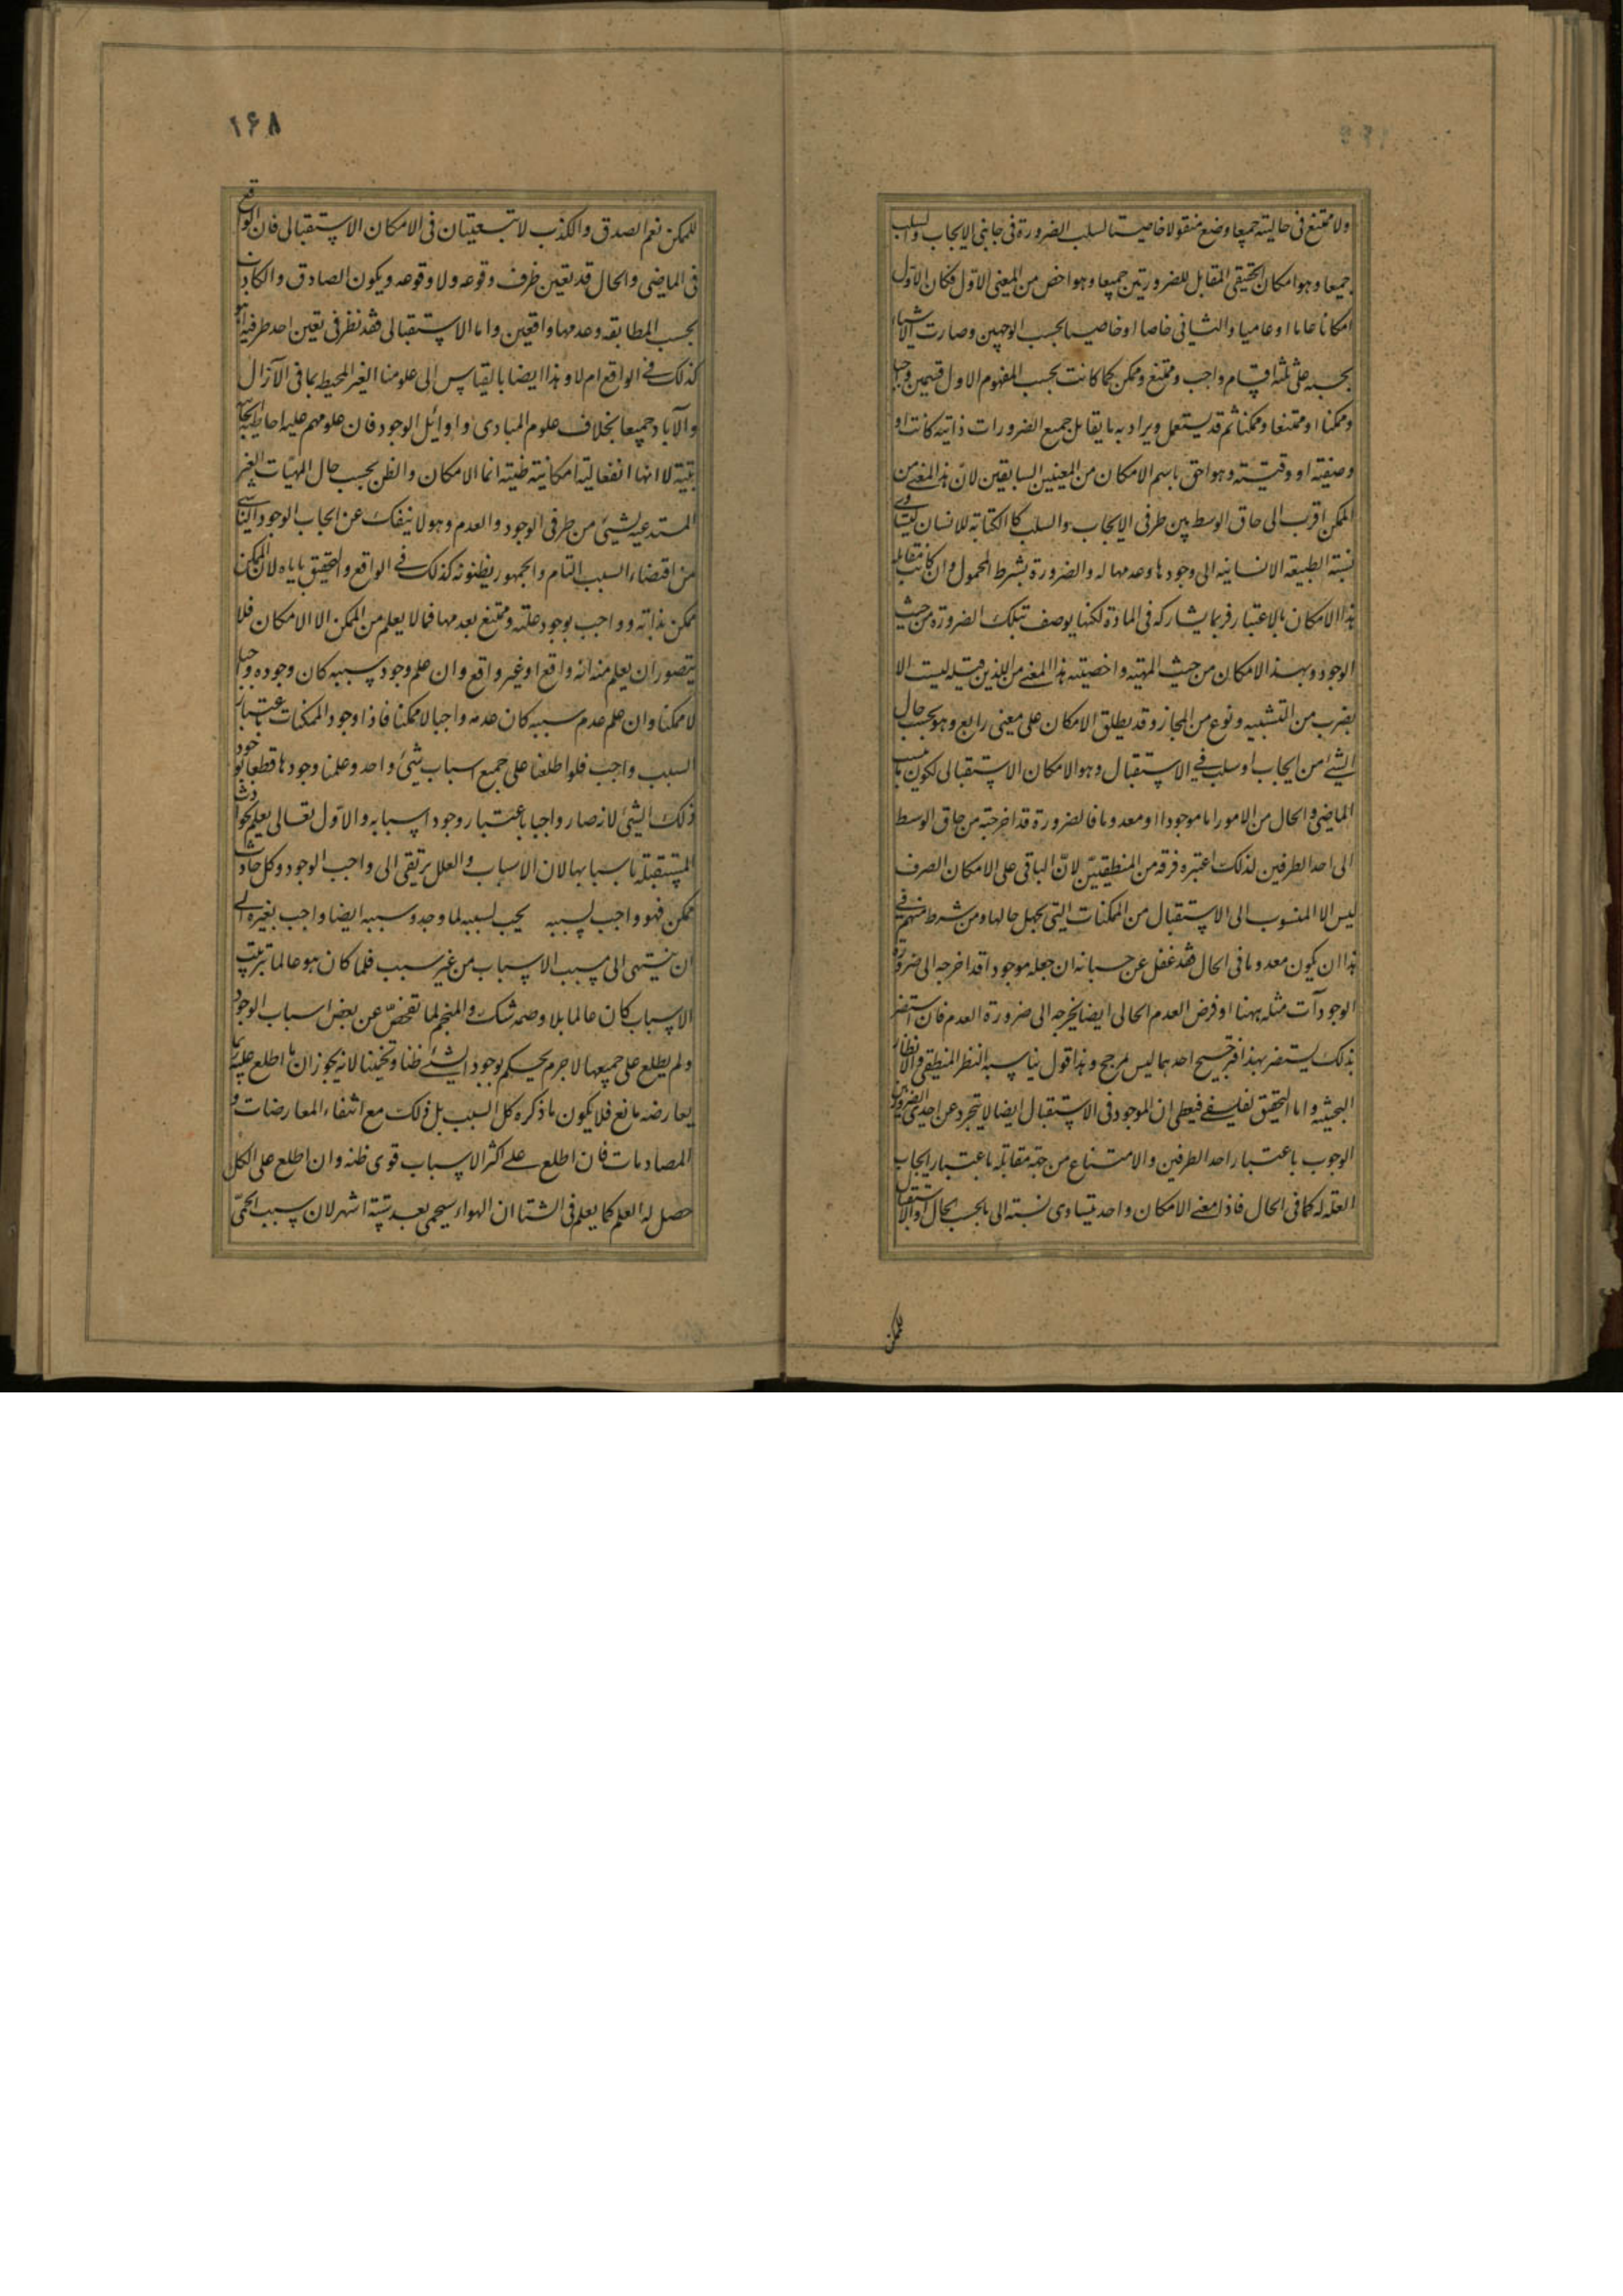 ولا ممتنع فی حالیته جمیعا وضع منقولا خاصیتا لسلب الضرورة فی جانبی الایجاب والسلب
جمیعا و هو امکان الحقیقی المقابل للضرورتین جمیعا و هو اخص من المعنی الاول فکان الاول
امکانا عاما او عامیا والثانی خاصا او خاصیا بحسب الوجهین وصارت الاشیاء
بحسبه علی ثلثة اقسام واجب و ممتنع و ممکن کما کانت بحسب المفهوم الاول قسمین واجبا
وممکنا او ممتنعا وممکنا ثم قد یستعمل ویراد به ما یقابل جمیع الضرورات ذاتیة کانت او
وصفیة او وقتیته و هو احق باسم الامکان من المعنیین السابقین لان هذا المعنی من
الممکن اقرب الی حاق الوسط بین طرفی الایجاب والسلب کالکتابه للانسان لتساوی
نسبة الطبیعه الانسانیه الی وجودها وعدمها له والضرورة بشرط المحمول وان کانت مقابله
لهذا الامکان بالاعتبار فربما یشارکه فی المادة لکنها یوصف بتلک الضرورة من حیث
الوجود وبهذا الامکان من حیث المهیته واخصیته هذا المعنی من اللذین قبیله لیست الا
بضرب من التشبیه ونوع من المجاز وقد یطلق الامکان علی معنی رابع وهو بحسب حال
الشئ من ایجاب او سلب فی الاستقبال وهو الامکان الاستقبالی لکون ما ینسب
الماضی والحال من الامور اما موجودا او معدوما فالضرورة قد اخرجته من حاق الوسط
الی احد الطرفین لذلک اعتبره فرقة من المنطقیین لان الباقی علی الامکان الصرف
لیس الا المنسوب الی الاستقبال من الممکنات التی یجهل حالها ومن شرط منهم فی
هذا ان یکون معدوما فی الحال فقد غفل عن حسبانه ان جعله موجودا قد اخرجه الی ضرورة
الوجود آت مثله ههنا او فرض العدم الحالی ایضا یخرجه الی ضرورة العدم فان استضر
بذلک یستضر بهذا فترجیح احدهما لیس لمرجح وهذا قول یناسبه النظر المنطقی والانظار
البحثیه واما التحقیق الفلسفی فیعطی ان الموجود فی الاستقبال ایضا لا یتجرد عن احدی الضرورتین
الوجوب باعتبار احد الطرفین والامتناع من جهة مقابله باعتبار ایجاب
العلة له کما فی الحال فاذا معنی الامکان واحد یتساوی نسبته الی ما بحسب الحال او الاستقبال
للممکن
۱۶۸
للممکن نعم الصدق والکذب لا تبعیتان فی الامکان الاستقبالی فان الواقع
فی الماضی والحال قد تعین طرف وقوعه ولا وقوعه ویکون الصادق والکاذب
بحسب المطابقه وعدمها واقعین واما الاستقبالی فقد نظر فی تعین احد طرفیه اهو
کذلک فی الواقع ام لا وهذا ایضا بالقیاس الی علومنا الغیر المحیط بما فی الآزال
والآباد جمیعا بخلاف علوم المبادی واوائل الوجود فان علومهم علیه احاطیة ایجابیه
بتیة لا انها انفعالیته امکانیته ظنیته انما الامکان والظن بحسب حال المهیات الغیر
المستدعیه لشیئ من طرفی الوجود والعدم وهو لا ینفک عن ایجاب الوجود الناشی
من اقتضاء السبب التام والجمهور یظنونه کذلک فی الواقع والتحقیق یاباه لان الممکن
ممکن بذاته وواجب بوجود علته وممتنع بعدمها فما لا یعلم من الممکن الا الامکان فلا
یتصور ان یعلم منه انه واقع او غیر واقع وان علم وجود سببه کان وجوده واجبا
لا ممکنا وان علم عدم سببه کان عدمه واجبا لا ممکنا فاذا وجود الممکنات باعتبار
السبب واجب فلو اطلعنا علی جمیع اسباب شیئ واحد وعلمنا وجودها قطعنا بوجود
ذلک الشیئ لانه صار واجبا باعتبار وجود اسبابه والاول تعالی یعلم الحوادث
المستقبله باسبابها لان الاسباب والعلل یرتقی الی واجب الوجود وکل حادث
ممکن فهو واجب لسببه یجب لسببه لما وجد وسببه ایضا واجب بغیره الی
ان ینتهی الی مسبب الاسباب من غیر سبب فلما کان هو عالما بترتیب
الاسباب کان عالما بلا وصمه شک والمنجم لما تفحص عن بعض اسباب الوجود
ولم یطلع علی جمیعها لا جرم یحکم بوجود الشئ ظنا وتخمینا لانه یجوز ان ما اطلع علیه ربما
یعارضه مانع فلا یکون ما ذکره کل السبب بل ذلک مع انتفاء المعارضات و
المصادمات فان اطلع علی اکثر الاسباب قوی ظنه وان اطلع علی الکل
حصل له العلم کما یعلم فی الشتا ان الهواء سیحمی بعد ستة اشهر لان سبب الحمی